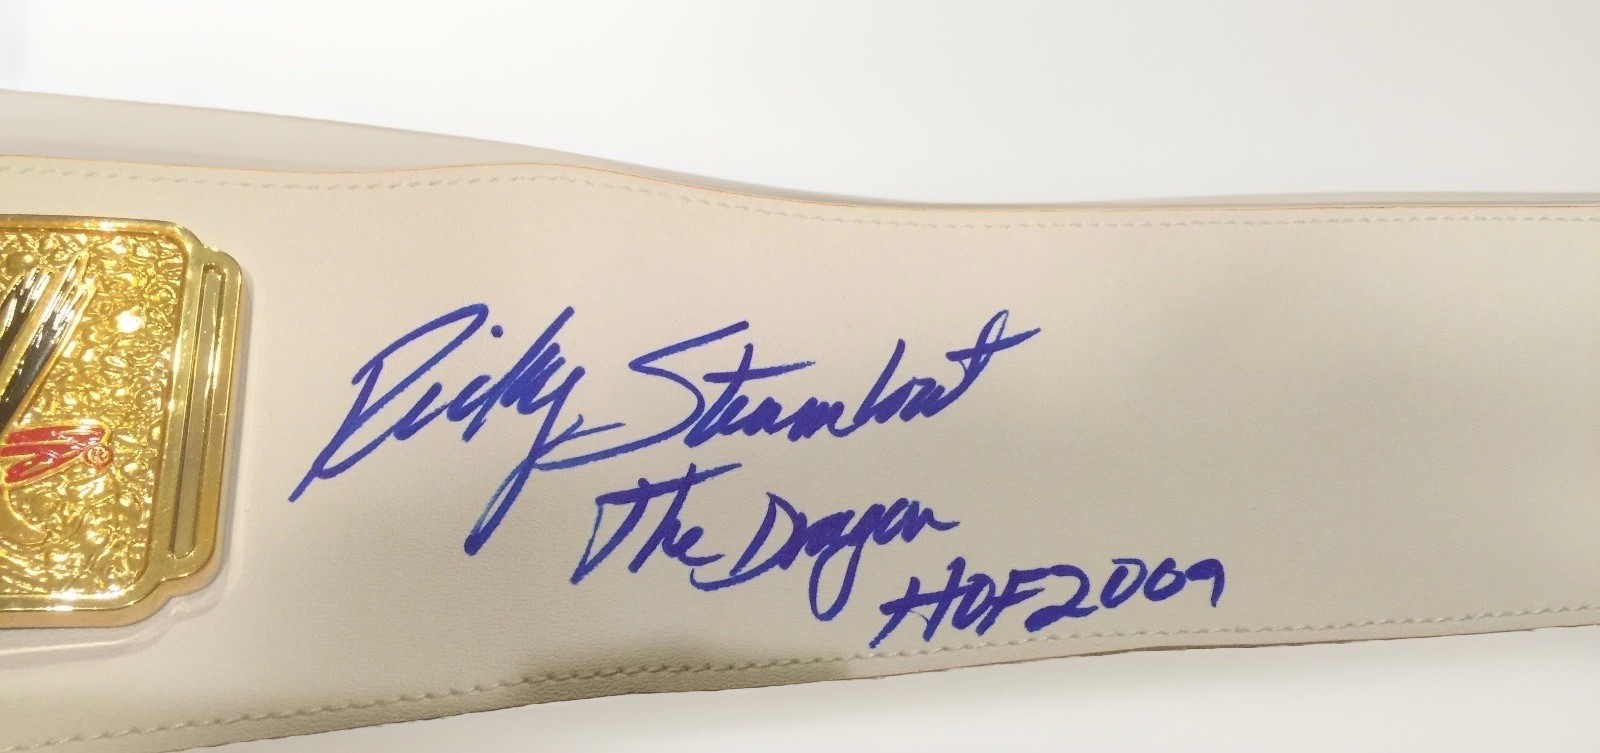 Ricky Steamboat
The Dragon
HOF 2009